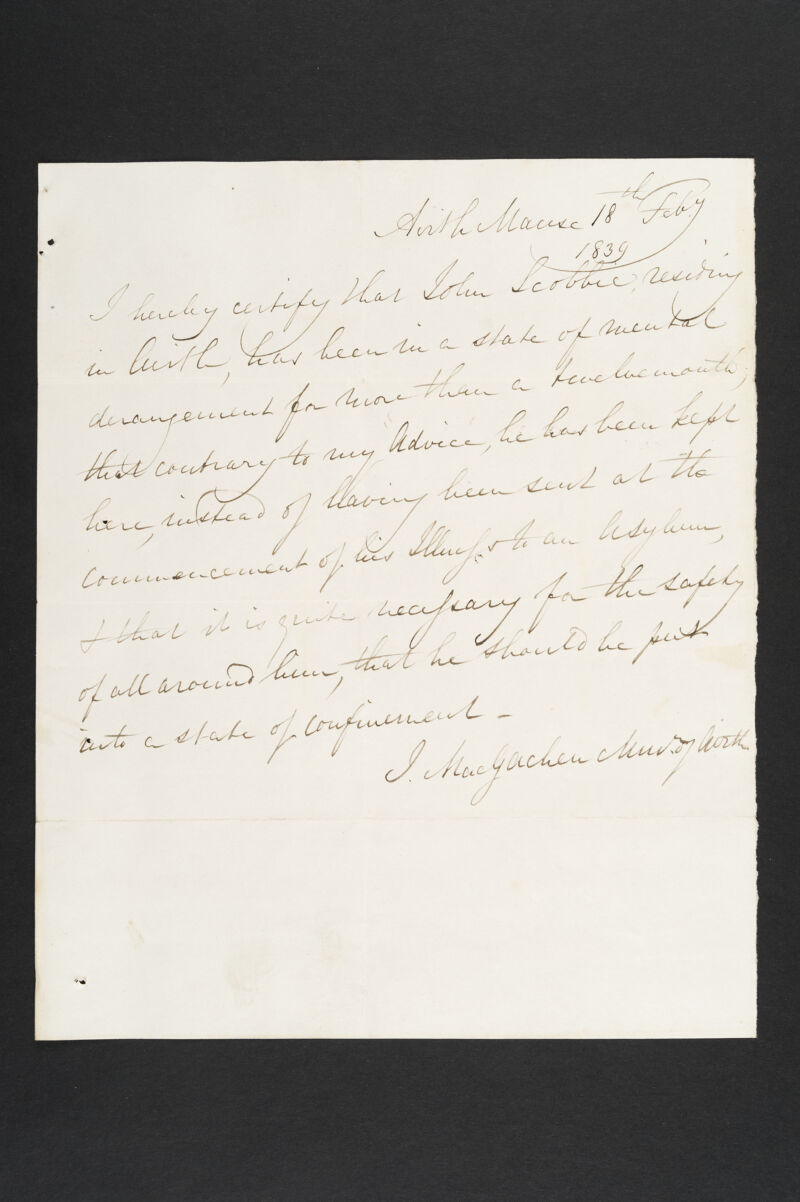 Airth Manse 18th Feby
1839
I hereby certify that John Scobbie, residing
in Airth, has been in a state of mental
derangement for more than a twelvemonth,
that contrary to my Advice, he has been kept
here, instead of having been sent at the
commencement of his Illness to an Asylum,
& that it is quite necessary for the safety
of all around him, that he should be put
into a state of confinement –
J. MacGachen Minr. of Airth